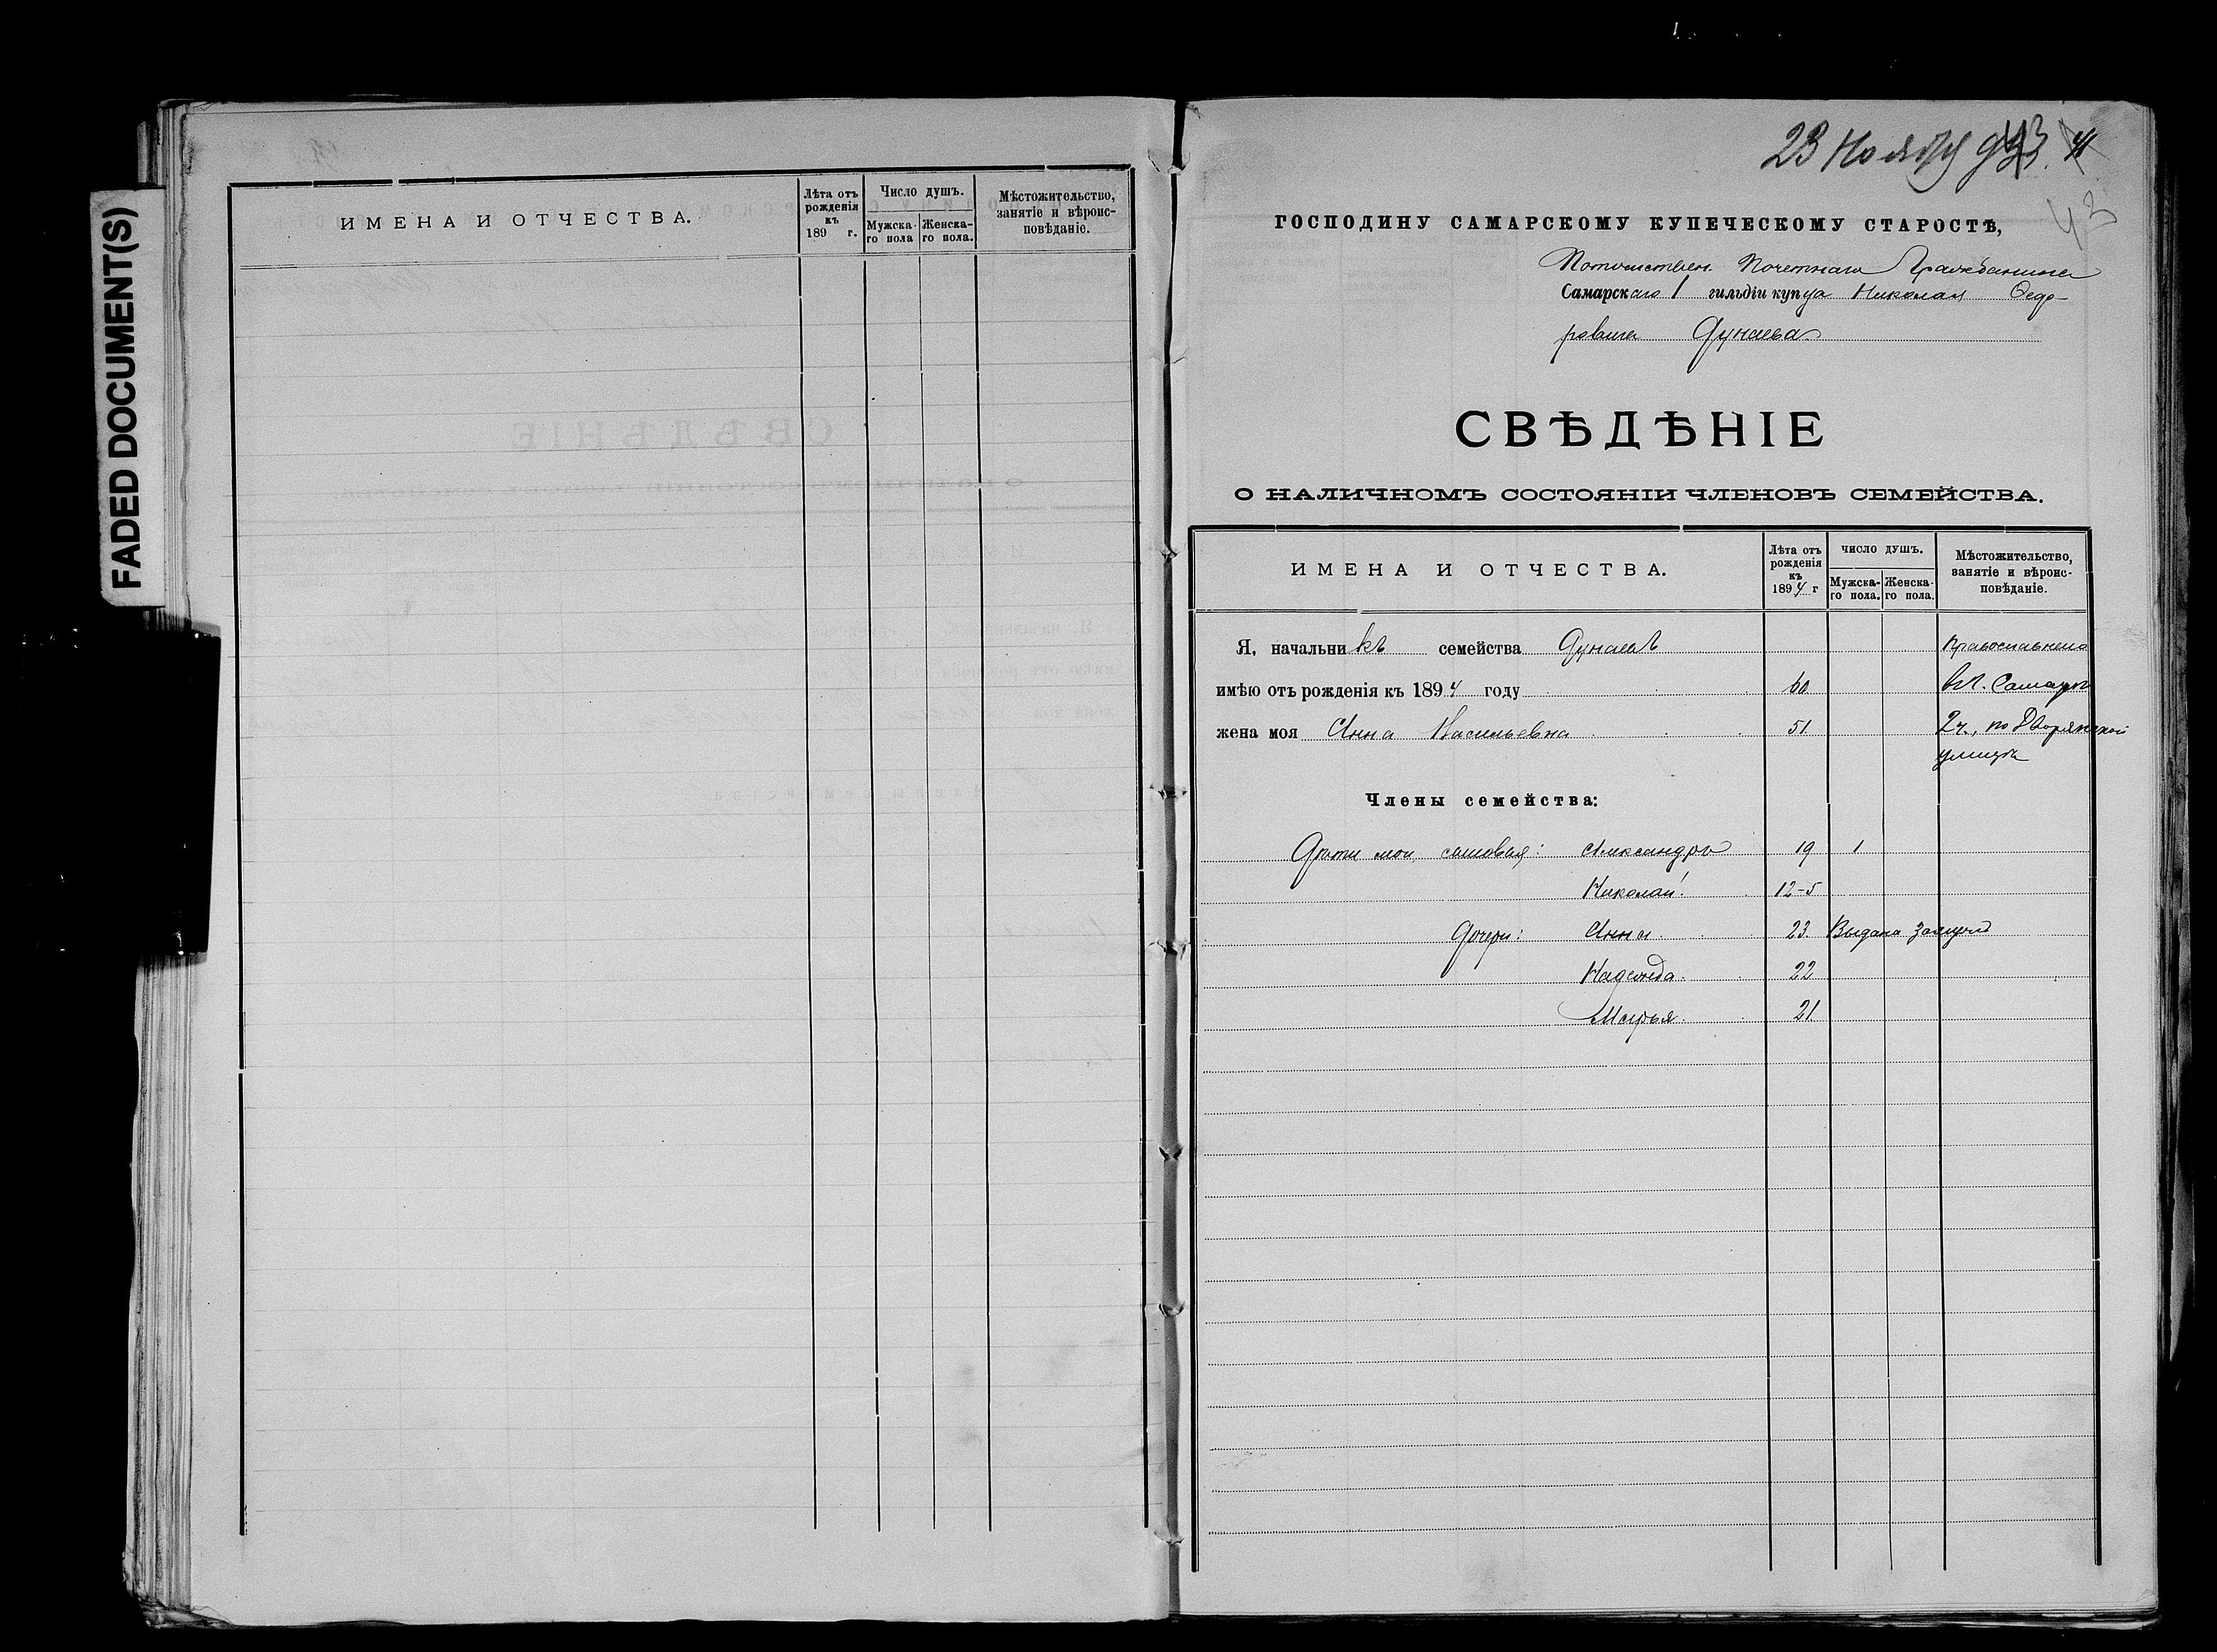 FADED DOCUMENT(S)
ИМЕНА И ОТЧЕСТВА.
Лѣта отъ рожденія къ 189 г.
Число душъ.
Мужска-го пола
Женска-го пола.
Мѣстожительство, занятіе и вѣроис-повѣданіе.
23 Ноября 93.
43
ГОСПОДИНУ САМАРСКОМУ КУПЕЧЕСКОМУ СТАРОСТѢ,
Потомствен. Почетнаго Гражданина
Самарскаго 1 гильдіи купца Николая Ѳедо-
ровича Дунаева
СВѢДѢНІЕ
О НАЛИЧНОМЪ СОСТОЯНІИ ЧЛЕНОВЪ СЕМЕЙСТВА.
ИМЕНА И ОТЧЕСТВА.
Лѣта отъ рожденія къ 1894 г
ЧИСЛО ДУШЪ.
Мужска-го пола.
Женска-го пола.
Мѣстожительство, занятіе и вѣроис-повѣданіе.
Я, начальникъ семейства Дунаевъ
имѣю отъ рожденія къ 1894 году 60 въ г. Самарѣ
жена моя Анна Васильевна 51 2 ч., по Дворянской
улицѣ
Члены семейства:
Дѣти мои, сыновья: Александръ 19 1
Николай 12-5
Дочери: Анна 23. Выдана замужъ
Надежда 22
Марья 21